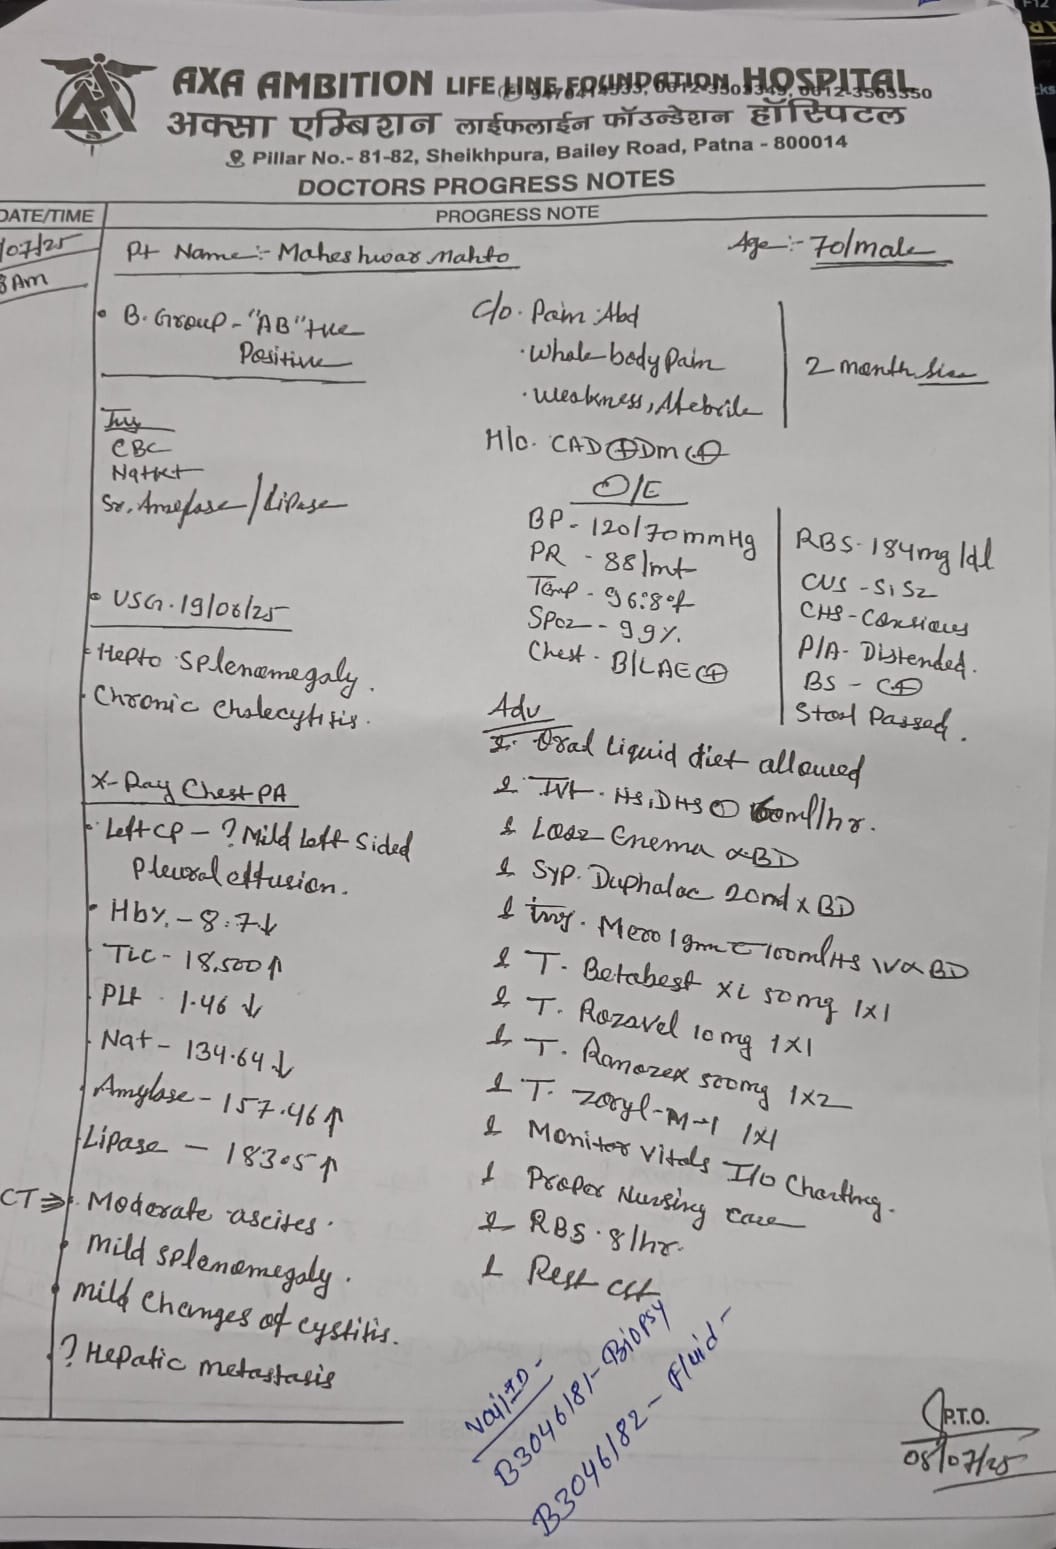 AXA AMBITION LIFE LINE FOUNDATION HOSPITAL
अक्सा एम्बिशन लाईफलाईन फॉउन्डेशन हॉस्पिटल
Pillar No.- 81-82, Sheikhpura, Bailey Road, Patna - 800014
DOCTORS PROGRESS NOTES
DATE/TIME
PROGRESS NOTE
/07/25
8 Am
Pt Name:- Maheshwar Mahto
Age:- 70/male
B. Group - "AB" +ve
Positive
CBC
Na+/K+
Sr. Amylase / Lipase
USG. 19/06/25
Hepto splenomegaly.
Chronic Cholecytisis.
X-Ray Chest PA
Left CP - ? Mild Left Sided
Pleural effusion.
Hb%. - 8.7↓
TLC - 18,500↑
Plt . 1.46 ↓
Na+ - 134.64↓
Amylase - 157.46↑
Lipase - 183.05↑
CT ⇒ Moderate ascites.
mild splenomegaly.
mild changes of cystitis.
? Hepatic metastasis
C/o. Pain Abd
. Whole body Pain
. Weakness, Afebrile
2 month
H/o. CAD ⊕ Dm ⊕
O/E
BP - 120/70 mmHg
PR - 88/mt
Temp - 96.8°f
SPO2 - 99%.
Chest - B/L AE ⊕
RBS - 184 mg/dl
CVS - S1 S2
CHS - Consious
P/A - Distended.
BS - ⊕
Stool Passed.
Adv
Oral liquid diet allowed
IVF. NS, DNS @ 60ml/hr.
Enema x BD
Syp. Duphalac 20ml x BD
Inj. Mero 1gm c̄ 100ml NS IV x BD
T. Betabest XL 50mg 1x1
T. Rozavel 10mg 1x1
T. Ranozex 500mg 1x2
T. Zoryl-M-1 1x1
Monitor vitals I/O Charting.
Proper Nursing care
RBS. 8/hr.
Rest
Vail ID -
B3046181 - Biopsy
B3046182 - Fluid -
P.T.O.
08/07/25